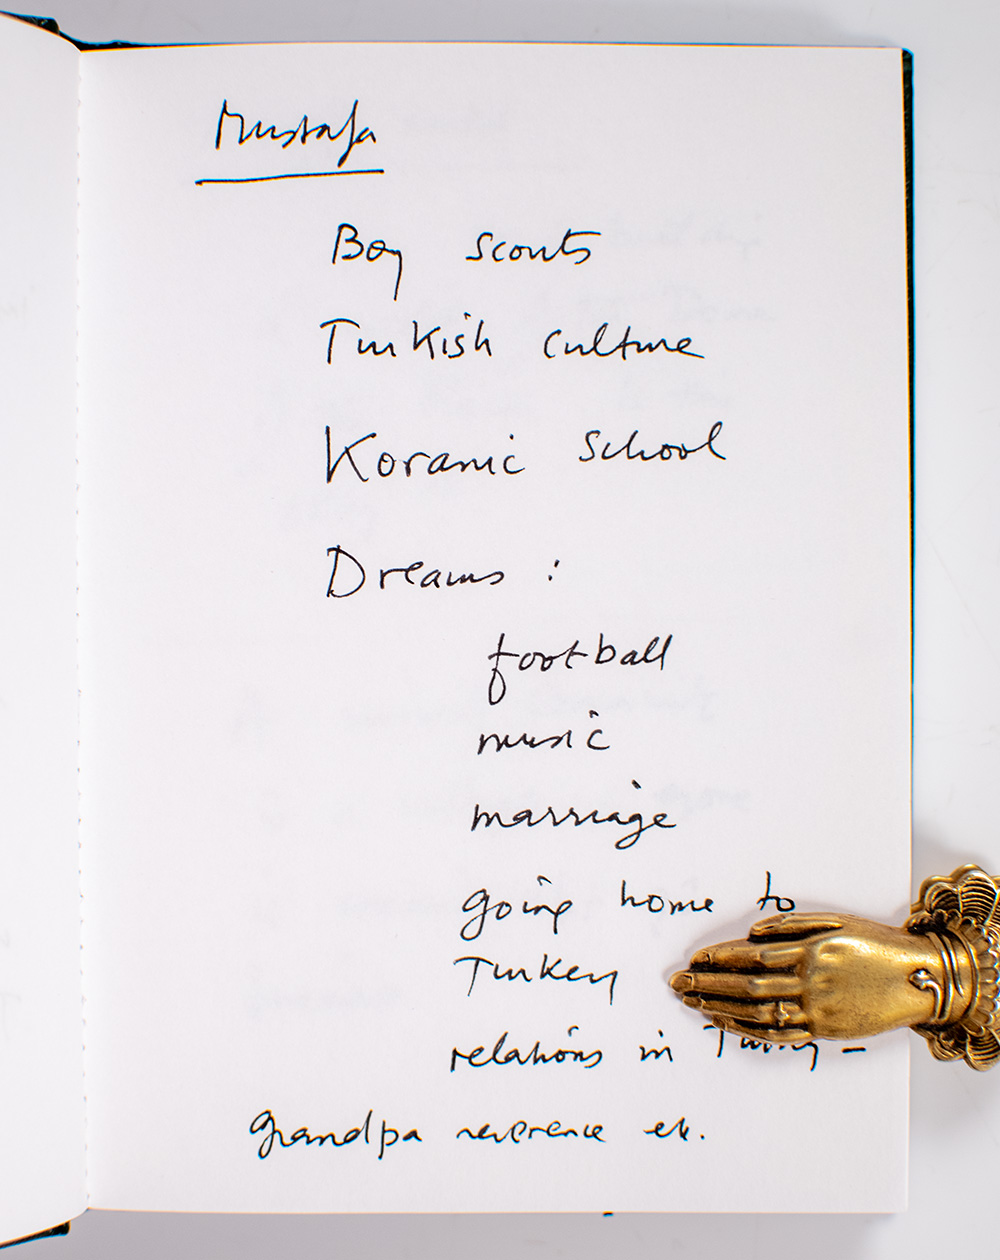 Mustafa
Boy scouts
Turkish culture
Koranic School
Dreams :
football
music
marriage
going home to
Turkey
relations in Turkey –
grandpa reverence etc.